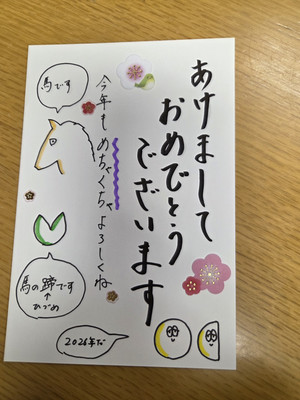 あけまして
おめでとう
ございます
今年もめちゃくちゃよろしくね
馬です
馬の蹄です
↑
ひづめ
2026年だ